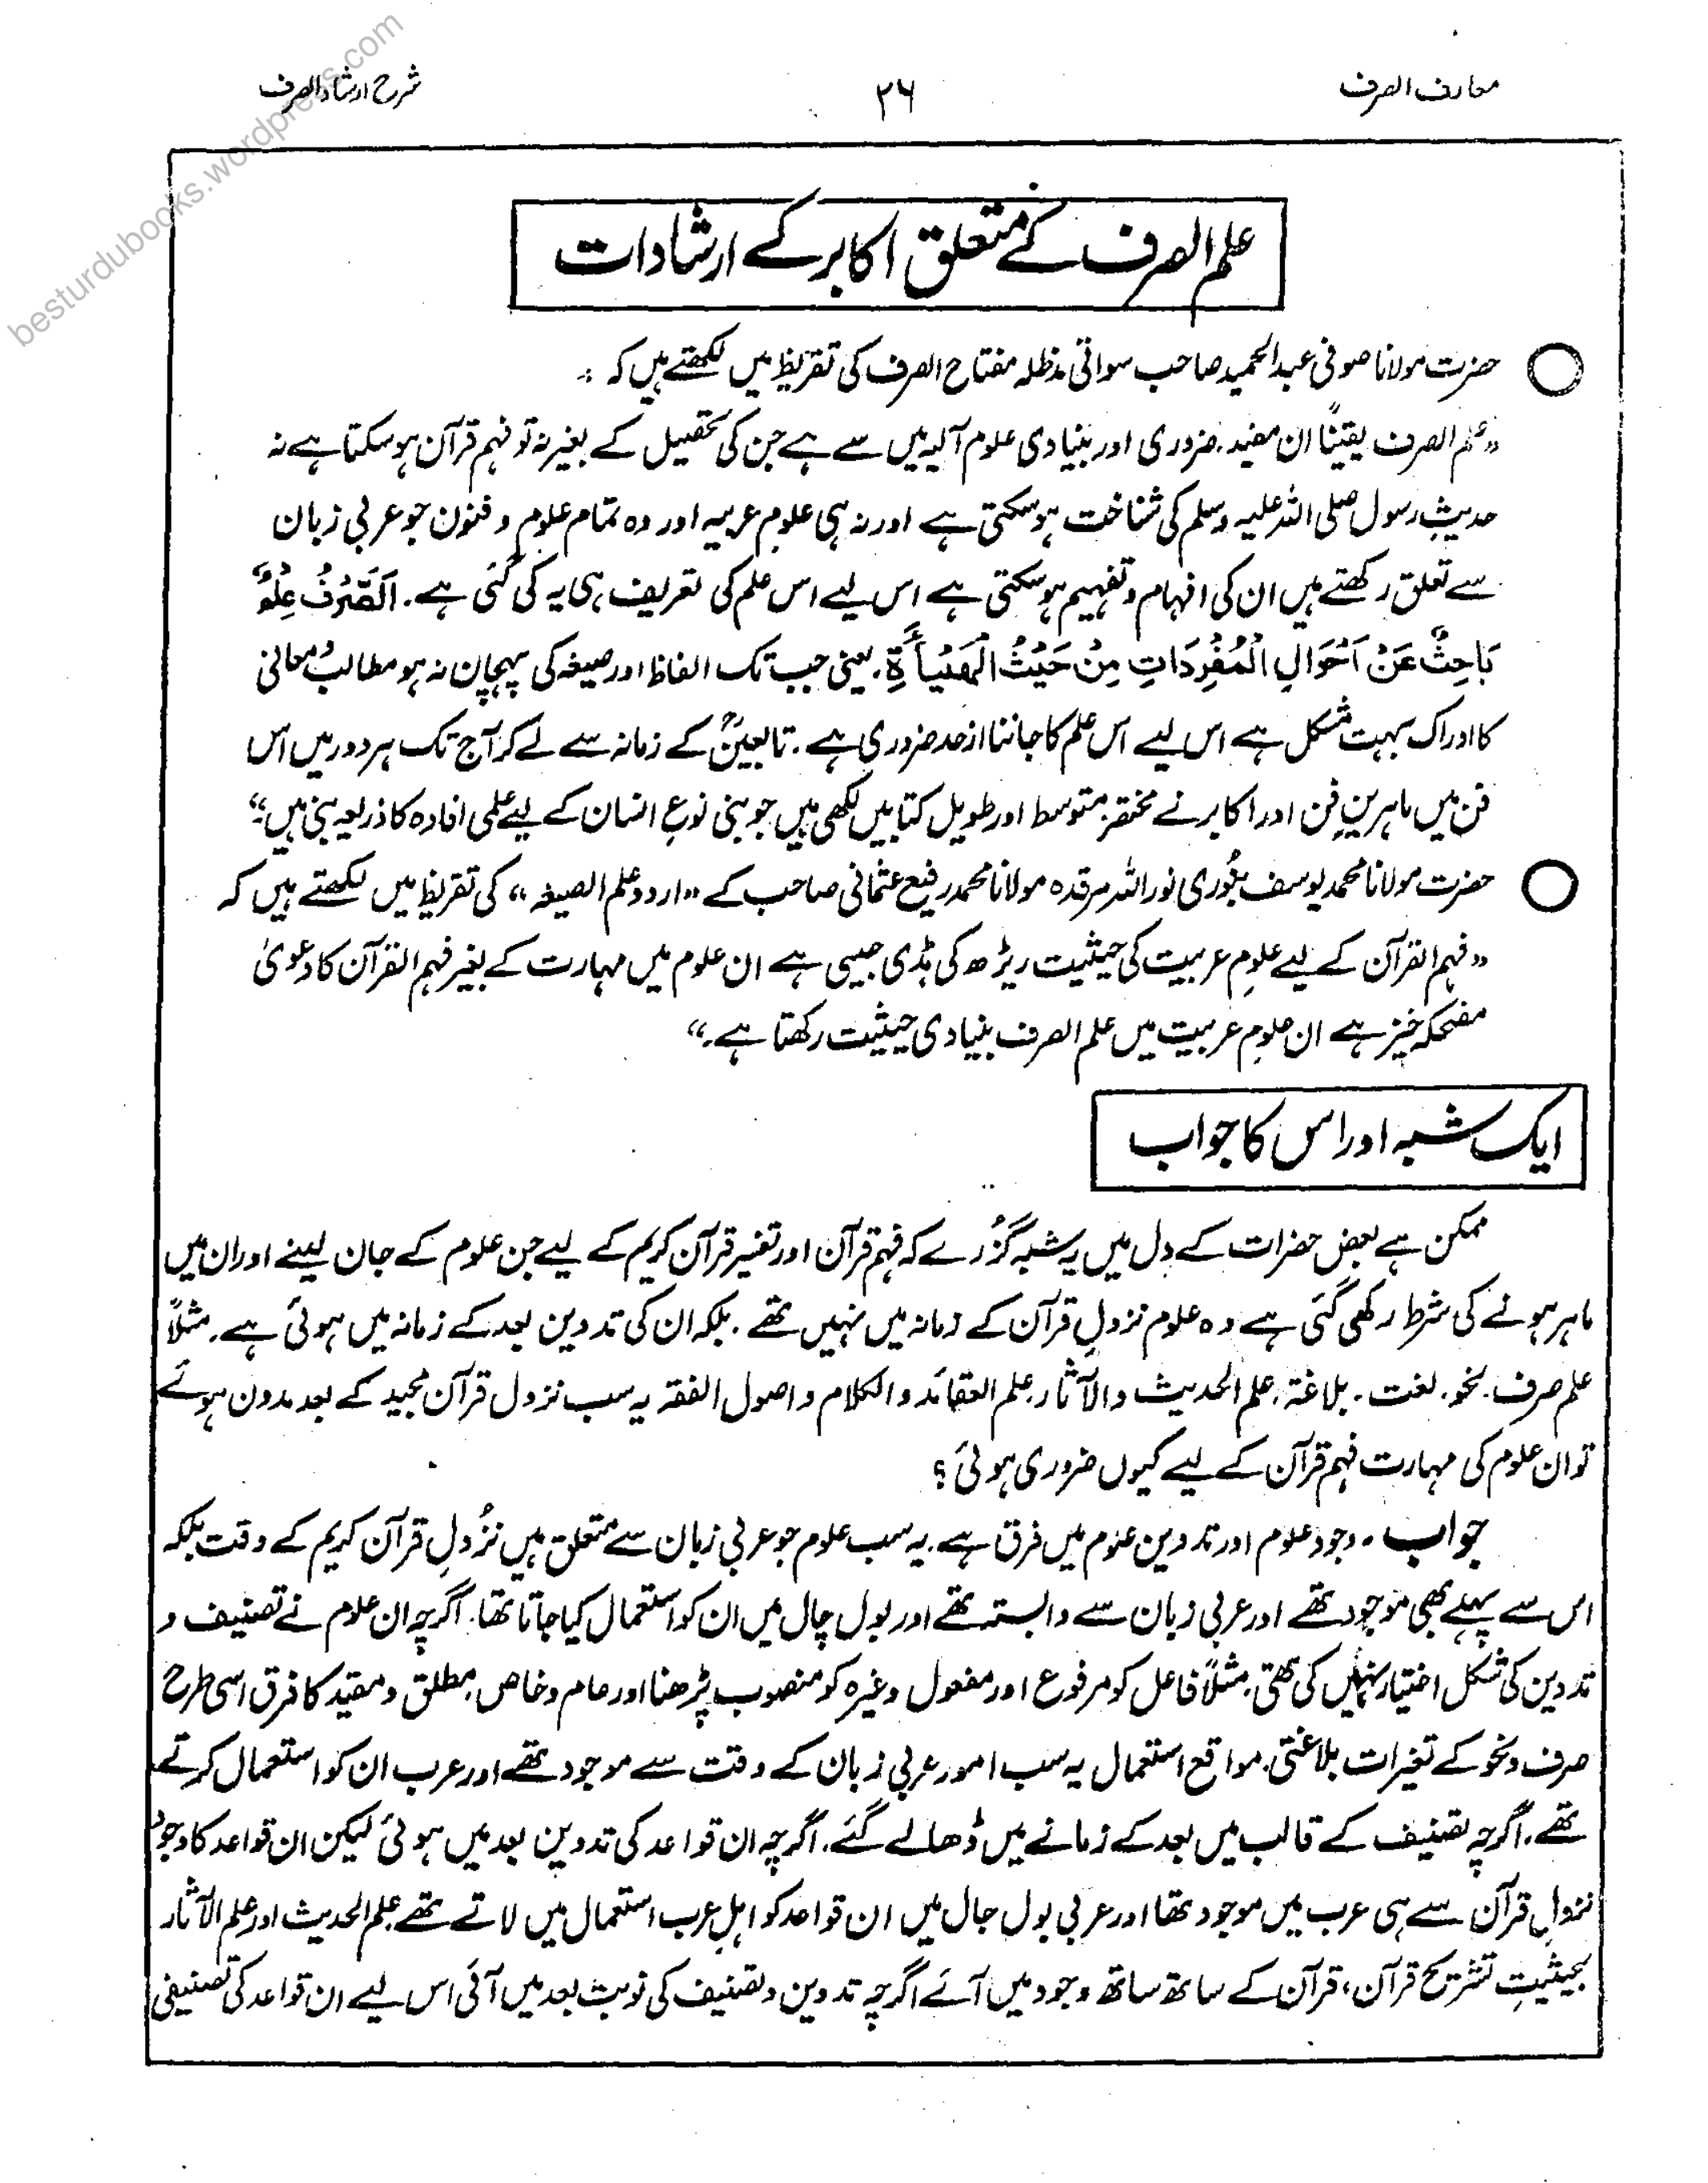 معارف الصرف
۲۶
شرح ارشاد الصرف
besturdubooks.wordpress.com
علم الصرف کے متعلق اکابر کے ارشادات
حضرت مولانا صوفی عبدالحمید صاحب سواتی مدظلہ مفتاح الصرف کی تقریظ میں لکھتے ہیں کہ :
"علم الصرف یقیناً ان مفید، ضروری اور بنیادی علوم آلیہ میں سے ہے جن کی تحصیل کے بغیر نہ تو فہم قرآن ہو سکتا ہے نہ
حدیثِ رسول صلی اللہ علیہ وسلم کی شناخت ہو سکتی ہے اور نہ ہی علومِ عربیہ اور وہ تمام علوم و فنون جو عربی زبان
سے تعلق رکھتے ہیں ان کی افہام و تفہیم ہو سکتی ہے اس لیے اس علم کی تعریف ہی یہ کی گئی ہے۔ اَلصَّرْفُ عِلْمٌ
بَاحِثٌ عَنْ اَحْوَالِ الْمُفْرَدَاتِ مِنْ حَيْثُ الْهَيْـأَةِ۔ یعنی جب تک الفاظ اور صیغہ کی پہچان نہ ہو مطالب و معانی
کا ادراک بہت مشکل ہے اس لیے اس علم کا جاننا از حد ضروری ہے۔ تابعینؒ کے زمانہ سے لے کر آج تک ہر دور میں اس
فن میں ماہرینِ فن اور اکابر نے مختصر، متوسط اور طویل کتابیں لکھی ہیں جو بنی نوعِ انسان کے لیے علمی افادہ کا ذریعہ بنی ہیں"
حضرت مولانا محمد یوسف بنوری نور اللہ مرقدہ مولانا محمد رفیع عثمانی صاحب کے "اردو علم الصیغہ" کی تقریظ میں لکھتے ہیں کہ
"فہم القرآن کے لیے علومِ عربیت کی حیثیت ریڑھ کی ہڈی جیسی ہے ان علوم میں مہارت کے بغیر فہم القرآن کا دعویٰ
مضحکہ خیز ہے ان علومِ عربیت میں علم الصرف بنیادی حیثیت رکھتا ہے۔"
ایک شبہ اور اس کا جواب
ممکن ہے بعض حضرات کے دل میں یہ شبہ گزرے کہ فہم قرآن اور تفسیر قرآن کریم کے لیے جن علوم کے جان لینے اور ان میں
ماہر ہونے کی شرط رکھی گئی ہے وہ علوم نزولِ قرآن کے زمانہ میں نہیں تھے۔ بلکہ ان کی تدوین بعد کے زمانہ میں ہوئی ہے۔ مثلاً
علم صرف۔ نحو۔ لغت۔ بلاغۃ۔ علم الحدیث والآثار۔ علم العقائد والکلام و اصول الفقہ یہ سب نزول قرآن مجید کے بعد مدون ہوئے
تو ان علوم کی مہارت فہم قرآن کے لیے کیوں ضروری ہوئی؟
جواب۔ وجودِ علوم اور تدوینِ علوم میں فرق ہے۔ یہ سب علوم جو عربی زبان سے متعلق ہیں نزُولِ قرآن کریم کے وقت بلکہ
اس سے پہلے بھی موجود تھے اور عربی زبان سے وابستہ تھے اور بول چال میں ان کو استعمال کیا جاتا تھا۔ اگرچہ ان علوم نے تصنیف و
تدوین کی شکل اختیار نہیں کی تھی۔ مثلاً فاعل کو مرفوع اور مفعول وغیرہ کو منصوب پڑھنا اور عام و خاص، مطلق و مقید کا فرق اسی طرح
صرف و نحو کے تغیرات بلاغتی۔ مواقع استعمال یہ سب امور عربی زبان کے وقت سے موجود تھے اور عرب ان کو استعمال کرتے
تھے۔ اگرچہ تصنیف کے قالب میں بعد کے زمانے میں ڈھالے گئے۔ اگرچہ ان قواعد کی تدوین بعد میں ہوئی لیکن ان قواعد کا وجود
نزولِ قرآن سے ہی عرب میں موجود تھا اور عربی بول چال میں ان قواعد کو اہلِ عرب استعمال میں لاتے تھے۔ علم الحدیث اور علم الآثار
بحیثیتِ تشریح قرآن، قرآن کے ساتھ ساتھ وجود میں آئے اگرچہ تدوین و تصنیف کی نوبت بعد میں آئی اس لیے ان قواعد کی تصنیفی